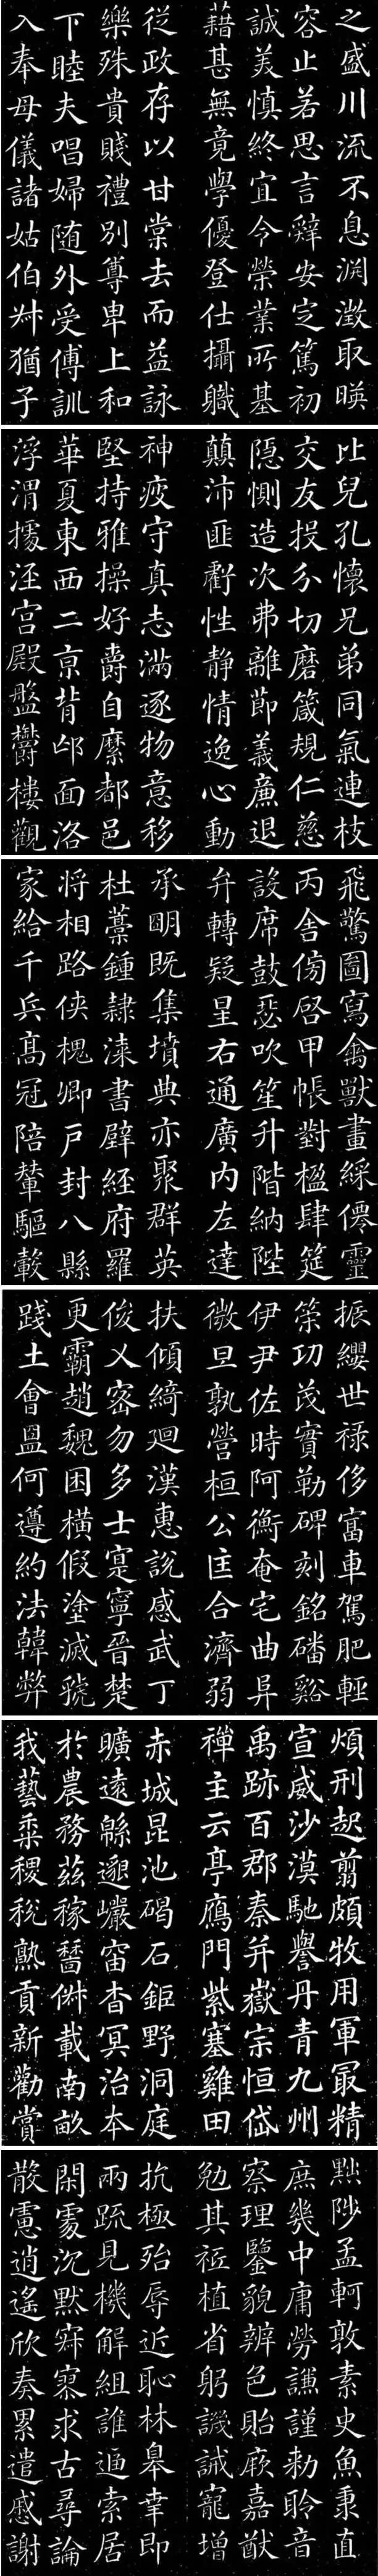 之盛川流不息淵澂取暎
容止若思言辭安定篤初
誠美慎終宜令榮業所基
藉甚無竟學優登仕攝職
從政存以甘棠去而益詠
樂殊貴賤禮別尊卑上和
下睦夫唱婦随外受傅訓
入奉母儀諸姑伯叔猶子
比兒孔懷兄弟同氣連枝
交友投分切磨箴規仁慈
隐惻造次弗離節義廉退
顛沛匪虧性静情逸心動
神疲守真志滿逐物意移
堅持雅操好爵自縻都邑
華夏東西二京背邙面洛
浮渭據涇宫殿盤欝樓觀
飛驚圖寫禽獸畫綵僊靈
丙舍傍啓甲帳對楹肆筵
設席鼓瑟吹笙升階納陛
弁轉疑星右通廣内左達
承明既集墳典亦聚群英
杜藁鍾隸漆書壁經府羅
将相路俠槐卿戶封八縣
家給千兵高冠陪輦驅轂
振纓世禄侈富車駕肥輕
策功茂實勒碑刻銘磻谿
伊尹佐時阿衡奄宅曲阜
微旦孰營桓公匡合濟弱
扶傾綺迴漢惠說感武丁
俊乂密勿多士寔寧晉楚
更霸趙魏困橫假塗滅虢
踐土會盟何遵約法韓弊
煩刑起翦頗牧用軍最精
宣威沙漠馳譽丹青九州
禹跡百郡秦并嶽宗恒岱
禪主云亭鴈門紫塞雞田
赤城昆池碣石鉅野洞庭
曠遠緜邈巖岫杳冥治本
於農務茲稼穡俶載南畝
我藝黍稷稅熟貢新勸賞
黜陟孟軻敦素史魚秉直
庶幾中庸勞謙謹勑聆音
察理鑒貌辨色貽厥嘉猷
勉其祗植省躬譏誡寵增
抗極殆辱近恥林皋幸即
兩疏見機解組誰逼索居
閑處沉默寂寥求古尋論
散慮逍遙欣奏累遣慼謝